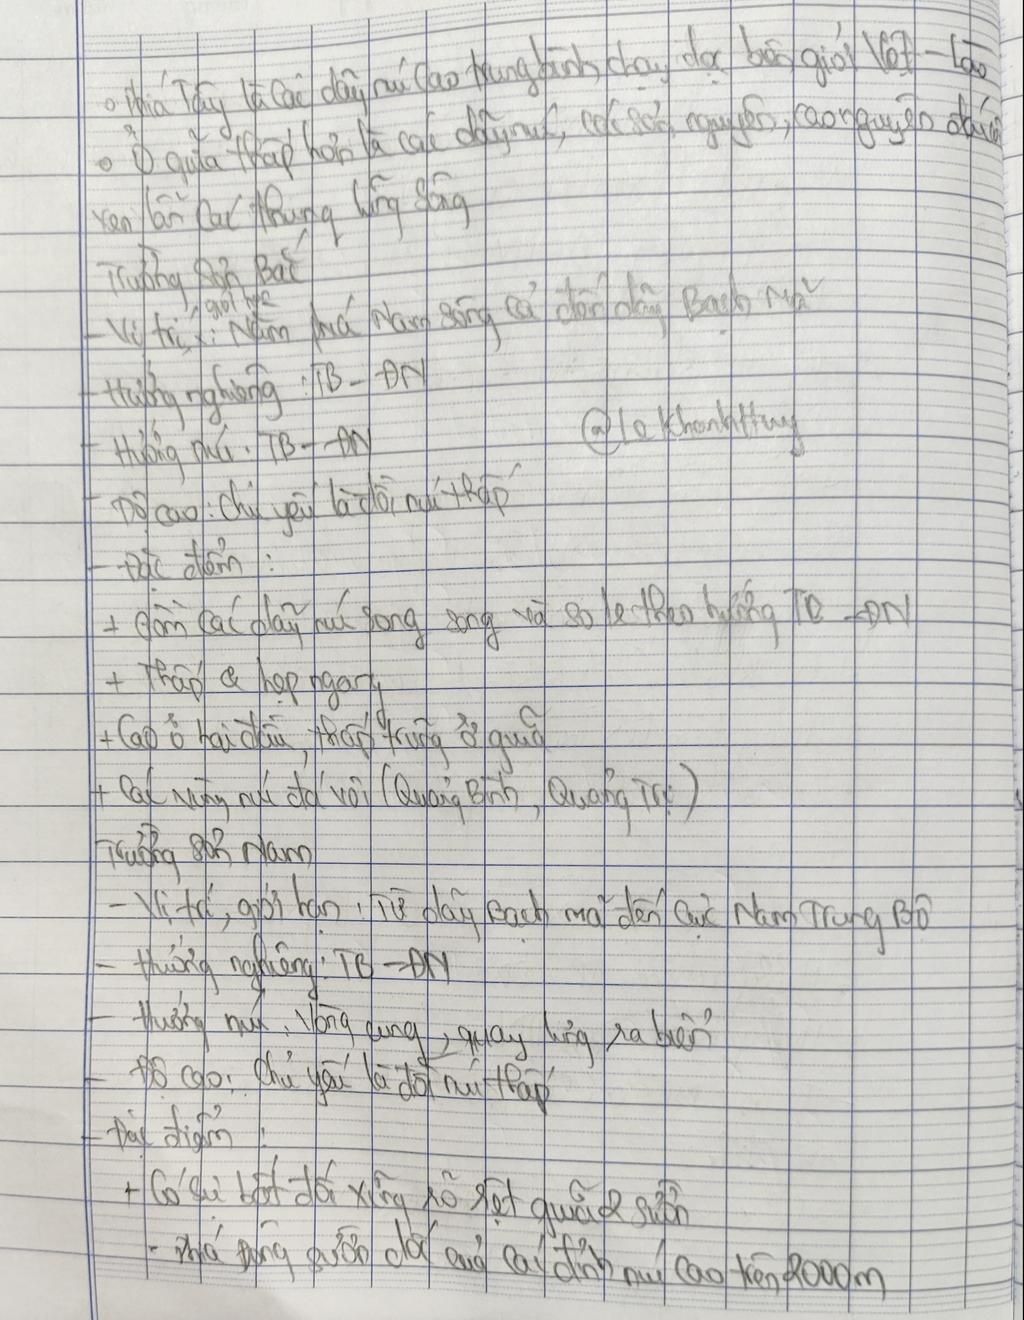 o Phía Tây là các dãy núi cao trung bình chạy dọc biên giới Việt - Lào
o Ở giữa thấp hơn là các dãy núi, các sơn nguyên, cao nguyên đá vôi
xen lẫn các thung lũng sông
Trường Sơn Bắc
- Vị trí, giới hạn: Nằm phía Nam sông Cả đến dãy Bạch Mã
- Hướng nghiêng: TB - ĐN
- Hướng núi: TB - ĐN
@lekhanhHuy
- Độ cao: Chủ yếu là đồi núi thấp
- Đặc điểm:
+ Gồm các dãy núi song song và so le theo hướng TB - ĐN
+ Thấp & hẹp ngang
+ Cao ở hai đầu, thấp trũng ở giữa
+ Các vùng núi đá vôi (Quảng Bình, Quảng Trị)
Trường Sơn Nam
- Vị trí, giới hạn: Từ dãy Bạch Mã đến cực Nam Trung Bộ
- Hướng nghiêng: TB - ĐN
- Hướng núi: Vòng cung, quay lưng ra biển
- Độ cao: Chủ yếu là đồi núi thấp
- Đặc điểm:
+ Có sự bất đối xứng rõ rệt giữa 2 sườn
- Phía Đông sườn dốc có các đỉnh núi cao trên 2000m